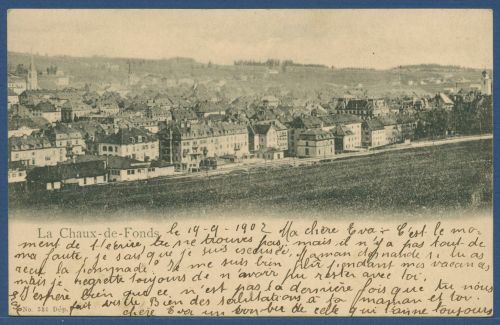 La Chaux-de-Fonds, le 19-9-1902 Ma chère Eva! C'est le mo-
ment de t'écrire, tu ne trouves pas, mais il n'y a pas tant de
ma faute, je sais que je suis excusée, J'aman demande si tu as
reçu la pommade. Je me suis bien plu pendant mes vacances
mais je regrette toujours de n'avoir pu rester avec toi.
J'espère bien que ce n'est pas la dernière fois que tu nous
No. 531 Dép.
fait visite. Bien des salutations à ta maman et toi
chère Eva un bon bec de celle qui t'aime toujours